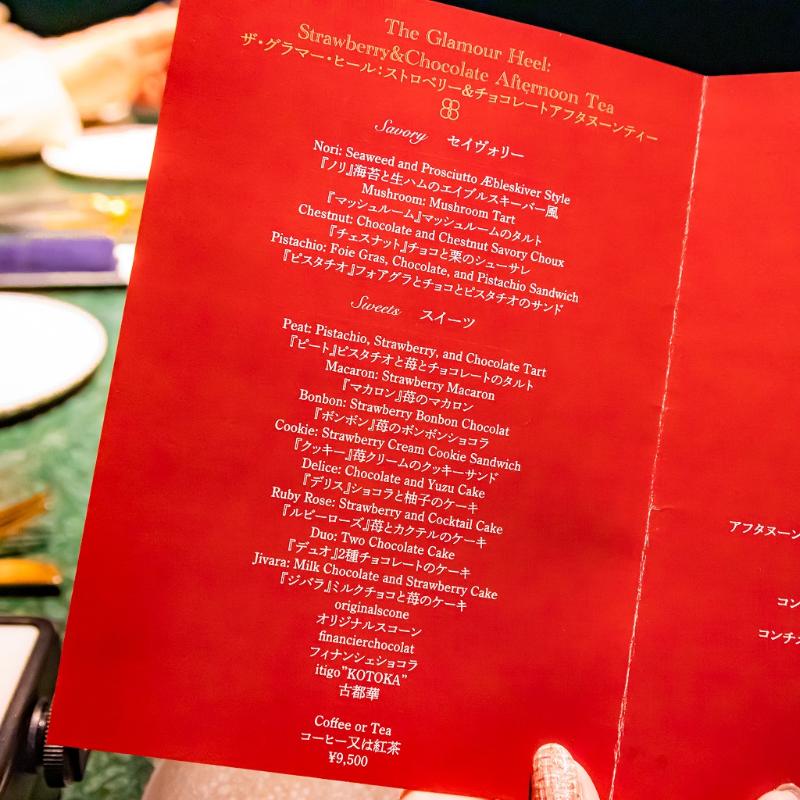 The Glamour Heel:
Strawberry&Chocolate Afternoon Tea
ザ・グラマー・ヒール：ストロベリー&チョコレートアフタヌーンティー
Savory セイヴォリー
Nori: Seaweed and Prosciutto Æbleskiver Style
『ノリ』海苔と生ハムのエイブルスキーバー風
Mushroom: Mushroom Tart
『マッシュルーム』マッシュルームのタルト
Chestnut: Chocolate and Chestnut Savory Choux
『チェスナット』チョコと栗のシューサレ
Pistachio: Foie Gras, Chocolate, and Pistachio Sandwich
『ピスタチオ』フォアグラとチョコとピスタチオのサンド
Sweets スイーツ
Peat: Pistachio, Strawberry, and Chocolate Tart
『ピート』ピスタチオと苺とチョコレートのタルト
Macaron: Strawberry Macaron
『マカロン』苺のマカロン
Bonbon: Strawberry Bonbon Chocolat
『ボンボン』苺のボンボンショコラ
Cookie: Strawberry Cream Cookie Sandwich
『クッキー』苺クリームのクッキーサンド
Delice: Chocolate and Yuzu Cake
『デリス』ショコラと柚子のケーキ
Ruby Rose: Strawberry and Cocktail Cake
『ルビーローズ』苺とカクテルのケーキ
Duo: Two Chocolate Cake
『デュオ』2種チョコレートのケーキ
Jivara: Milk Chocolate and Strawberry Cake
『ジバラ』ミルクチョコと苺のケーキ
originalscone
オリジナルスコーン
financierchocolat
フィナンシェショコラ
itigo"KOTOKA"
古都華
Coffee or Tea
コーヒー又は紅茶
¥9,500
アフタヌーン
コン
コンチ